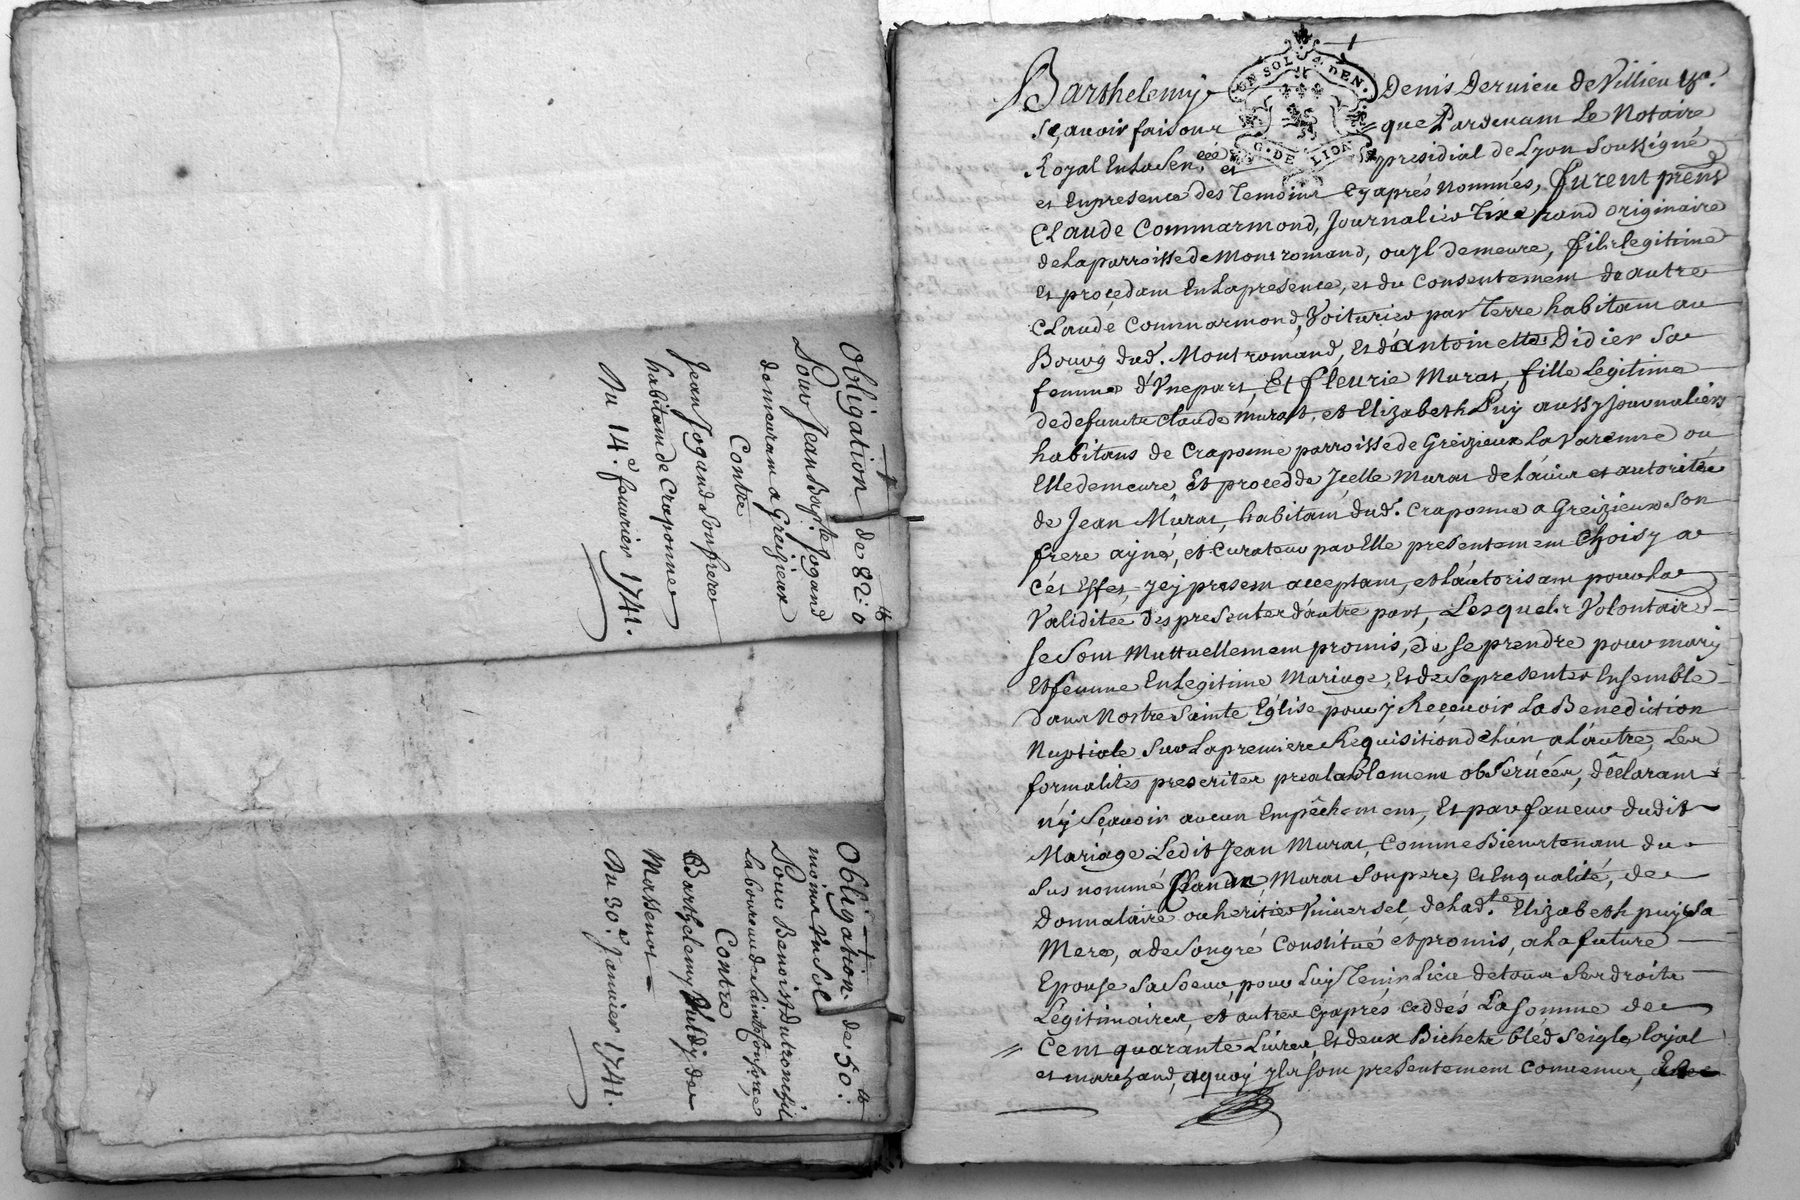 Obligation de 82:₶ 0
Pour Jean Bapte Jogand
demeurant a Greizieux
Contre
Jean Jogand son frere
habitant de Craponne
Du 14e. feuurier 1741.
Obligation de 50:₶
moins Un Sol
Pour Benoist Dutronchil
Laboureur de Sainte Consorce
Contre
Barthelemy
Massenot
Du 30e. Januier 1741.
UN SOL 4 DEN.
G. DE LION
Barthelemy Denis Deruieu de Villieu
Sçauoir faisons que Pardeuant Le Notaire
Royal En la Sen.cée et presidial de Lyon Soussigné
et En presence des Temoins Cy aprés Nommés, furent prents
Claude Commarmond, Journalier Tixerand originaire
de La parroisse de Montromand, ou Jl demeure, fils legitime
Et proçedant En La presence, et du Consentement de autre
Claude Commarmond, Voiturier par Terre habitant au
Bourg dud. Montromand, Et d'antoinette Didier Sa
femme d'Une part, Et fleurie Murat, fille Légitime
de defuncts Claude Murat, et Elizabeth Puy aussy Journaliers
habitans de Craponne parroisse de Greizieux La Varenne ou
Elle demeure, Et procedde Jcelle Murat de L'auis et autoritée
de Jean Murat, habitant dud. Craponne a Greizieux Son
frere ayné, et Curateur par Elle presentement Choisy a
Cét Effet, Jcy present acceptant, et L'autorisant pour La
Validitée des presentes d'autre part, Lesquels Volontair.t
se Sont Muttuellement promis, de se prendre pour mary
Et femme En Legitime Mariage, Et de Se presenter Ensemble
dans Nostre Sainte Église pour y Reçeuoir La Benediction
Nuptiale Sur La premiere Requisition de L'un a L'autre, Les
formalités prescrites prealablement obseruées, déclarant
n'y Sçauoir aucun Empêchement, Et par faueur dudit
Mariage Ledit Jean Murat, Comme Bienstenant du
Sus nommé Claude Murat Son pere, et En qualité, de
Donnataire ou heritier Vniuersel, de Lad.te Elizabeth puy Sa
Mere, a de Son gré Constitué et promis, a La future
Epouse Sa Soeur, pour Luy Tenir Lieu de tous Ses droits
Légitimaires, et autres Cy aprés Ceddés La Somme de
Cent quarante Liures, Et deux Bichets bléd Seigle, Loyal
et marchand, a quoy Jls sont presentement Conuenus,